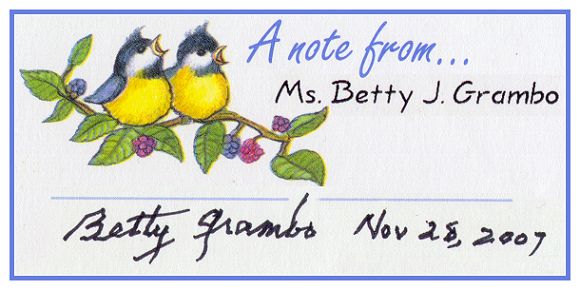 A note from...
Ms. Betty J. Grambo
Betty Grambo Nov 28, 2007